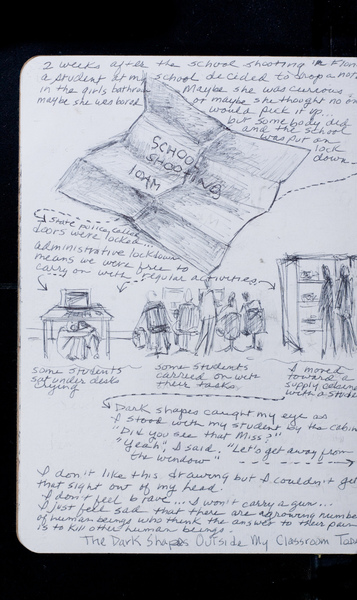 2 weeks after the school shooting in
a student at my school decided to drop a
in the girls bathroom Maybe she was curious
maybe she was bored or maybe she thought no
would pick it up...
but somebody did
and the school
was put on
lock
down
SCHOOL
SHOOTING
10AM
State police called
doors were locked...
administrative lockdown
means we were free to
carry on with regular activities
some students
sat under desks
crying
some students
carried on with
their tasks.
I moved
toward a
supply
with a
Dark shapes caught my eye as
I stood with my student by the
"Did you see that Miss?"
"Yeah", I said. "Let's get away from
the window"
I don't like this drawing but I couldn't get
that sight out of my head.
I don't feel brave... I won't carry a gun...
I just feel sad that there are a growing number
of human beings who think the answer to their pain
is to kill other human beings.
The Dark Shapes Outside My Classroom